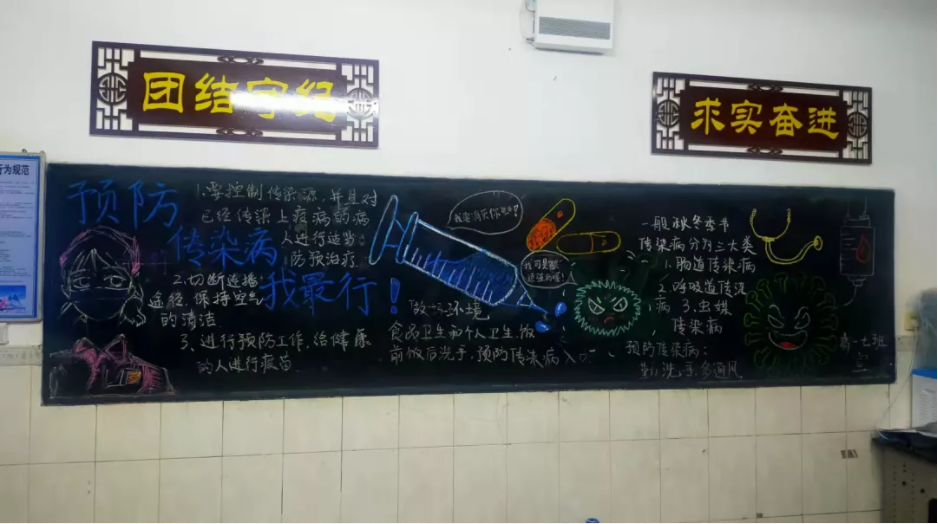 团结守纪
求实奋进
行为规范
预防
传染病
我最行！
1.要控制传染源，并且对
已经传染上疫病的病
人进行适当
防预治疗
2.切断连播
途径，保持空气
的清洁
3、进行预防工作，给健康
的人进行疫苗
我要消灭你
我可是
环境
食品卫生和个人卫生，饭
前饭后洗手，预防传染病入口
一般秋冬季节
传染病分为三大类
1.肠道传染病
2.呼吸道传染
病 3、虫媒
传染病
预防传染病：
勤洗手多通风